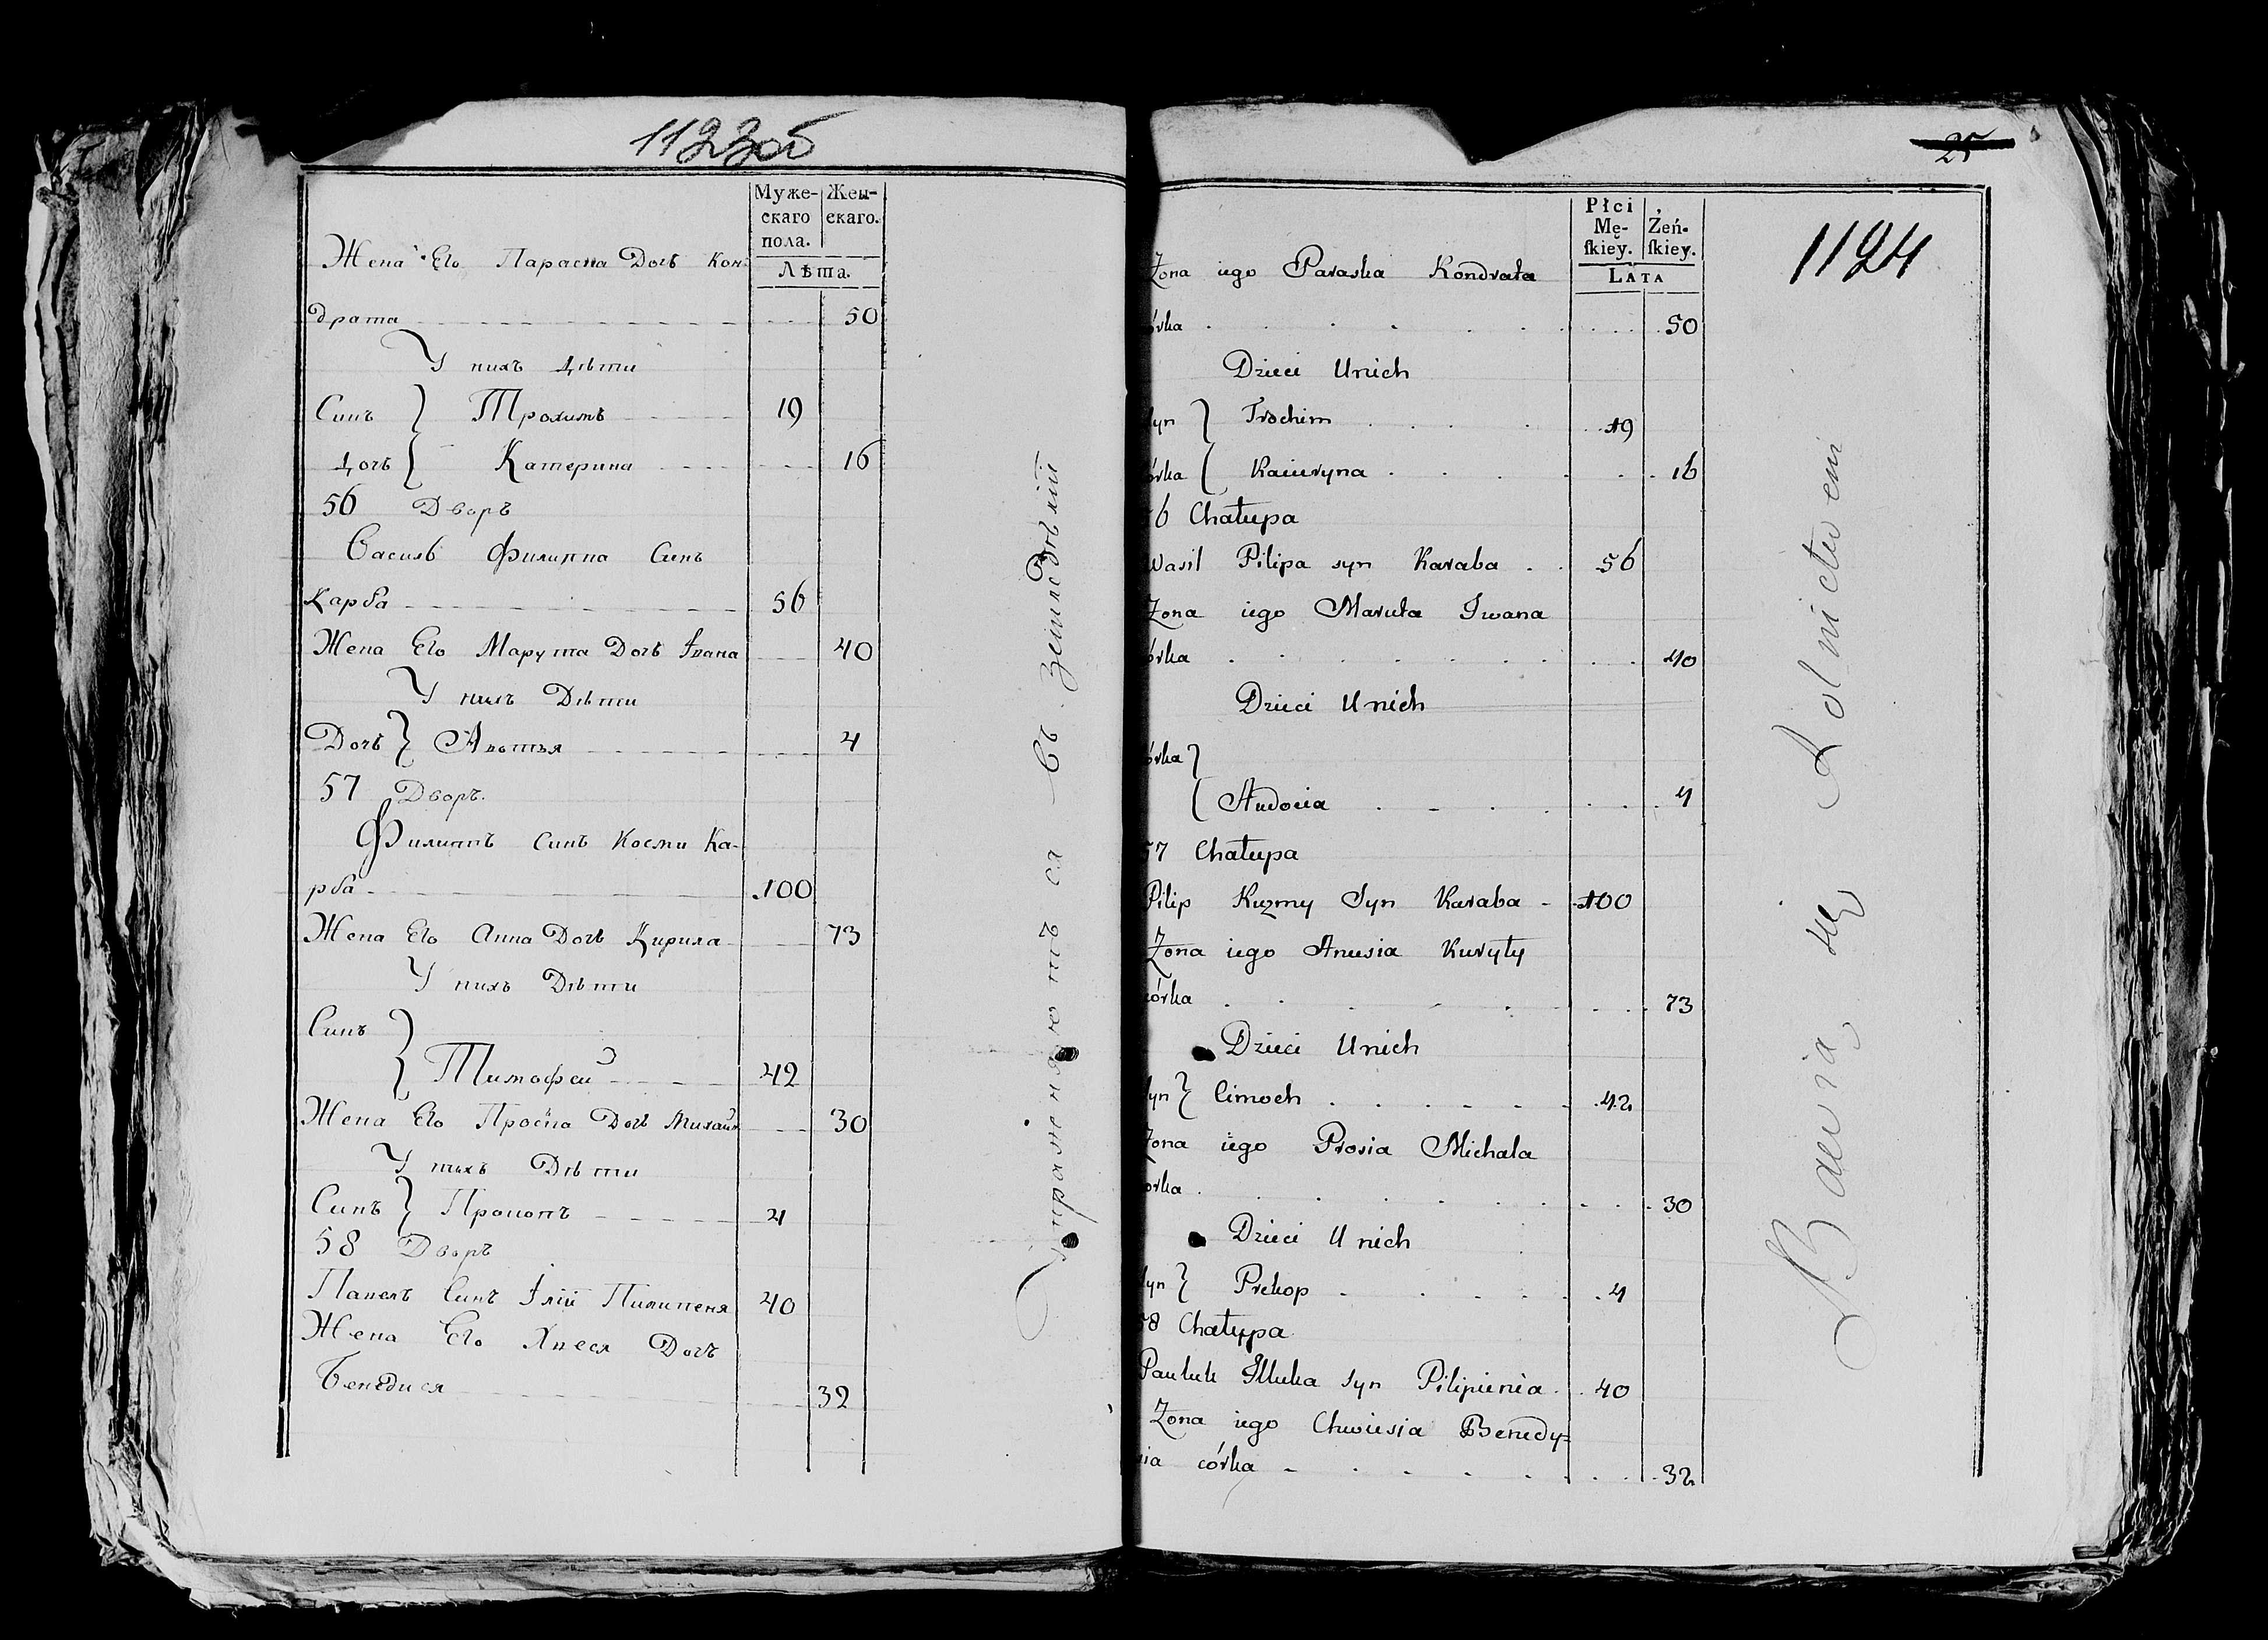 1123об
Муже- Жен-
скаго скаго.
пола.
Лѣта.
Жена Его Параска Дочь Кон
драта 50
У нихъ Дѣти
Синъ } Трохимъ 19
Дочь { Катерина 16
56 Дворъ
Василь Филиппа Синъ
Карба 56
Жена Его Марута Дочь Івана 40
У нихъ Дѣти
Дочь } Авдотья 4
57 Дворъ.
Филиппъ Синъ Косми Ка-
рба 100
Жена Его Анна Дочь Кирила 73
У нихъ Дѣти
Синъ }
} Тимофей 42
Жена Его Просia Дочь Михайл 30
У нихъ Дѣти
Синъ } Прокопъ 4
58 Дворъ
Павелъ Синъ Іліи Пилипеня 40
Жена Его Хвеся Дочь
Бенедися 32
Упражняютъ ся въ земледѣліи
25
1124
Płci
Mę- Żeń-
ſkiey. ſkiey.
LATA
Żona iego Paraska Kondrata
órka 50
Dzieci Unich
syn } Trochim 19
órka { Kateryna 16
6 Chałupa
Wasil Pilipa syn Karaba 56
Żona iego Maruta Iwana
órka 40
Dzieci Unich
órka }
{ Audocia 4
57 Chałupa
Pilip Kuzmy Syn Karaba 100
Żona iego Anusia Kuryły
córka 73
Dzieci Unich
syn } Cimoch 42
Żona iego Prosia Michała
órka 30
Dzieci Unich
syn } Prekop 4
58 Chałupa
Pauluk Illuka syn Pilipienia 40
Żona iego Chwiesia Benedy=
sia córka 32
Bawią się Rolnictwem